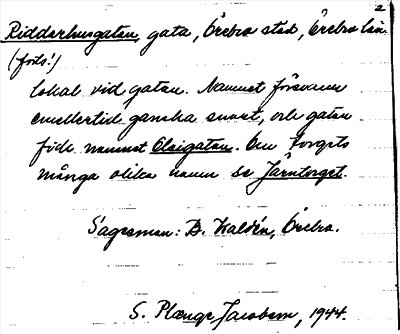 2
Ridderhusgatan, gata, Örebro stad, Örebro län
(forts.)
lokal vid gatan. Namnet försvann
emellertid ganska snart, och gatan
fick namnet Olaigatan. Om torgets
många olika namn se Järntorget.
Sagesman: B. Waldén, Örebro.
S. Plænge Jacobson, 1944.